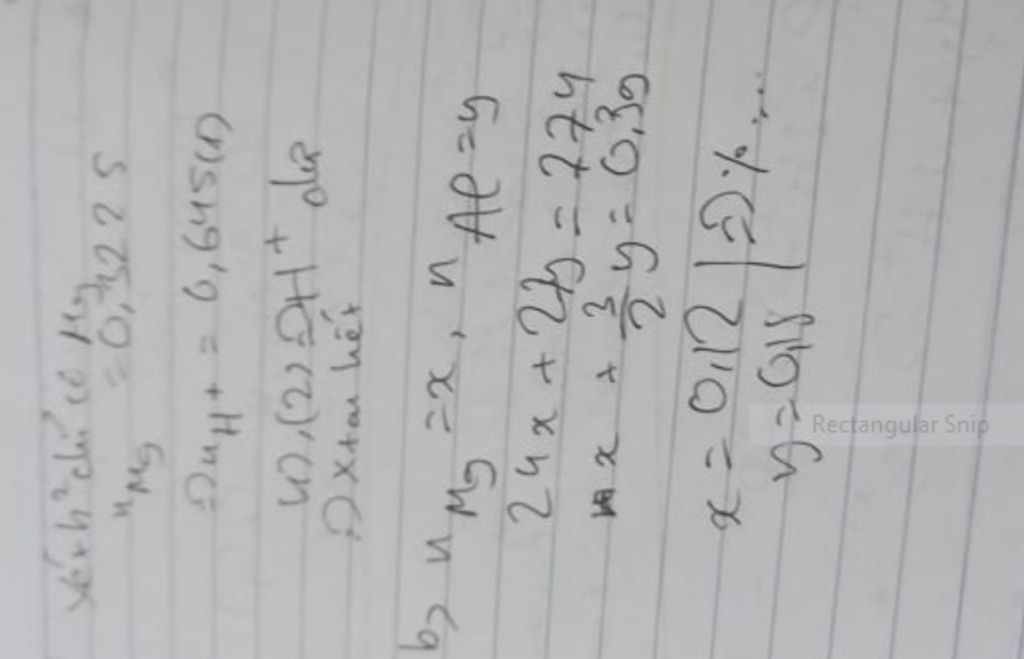 Xét h² chỉ có Mg
n Mg = 0,3225
⇒ n H+ = 0,645 (1)
(1), (2) ⇒ H+ dư
⇒ X tan hết
b) n Mg = x, n Al = y
24x + 27y = 7,74
x + 3/2 y = 0,39
x = 0,12 | ⇒ % ...
y = 0,18
Rectangular Snip